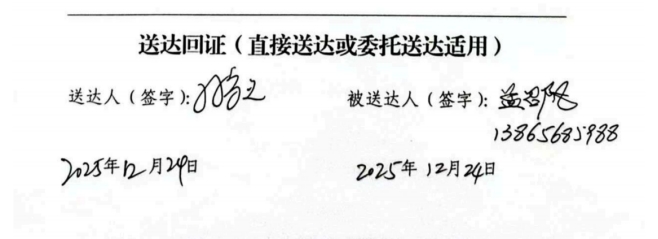 送达回证（直接送达或委托送达适用）
送达人（签字）： 被送达人（签字）：孟
13865685988
2025年12月24日 2025年12月24日